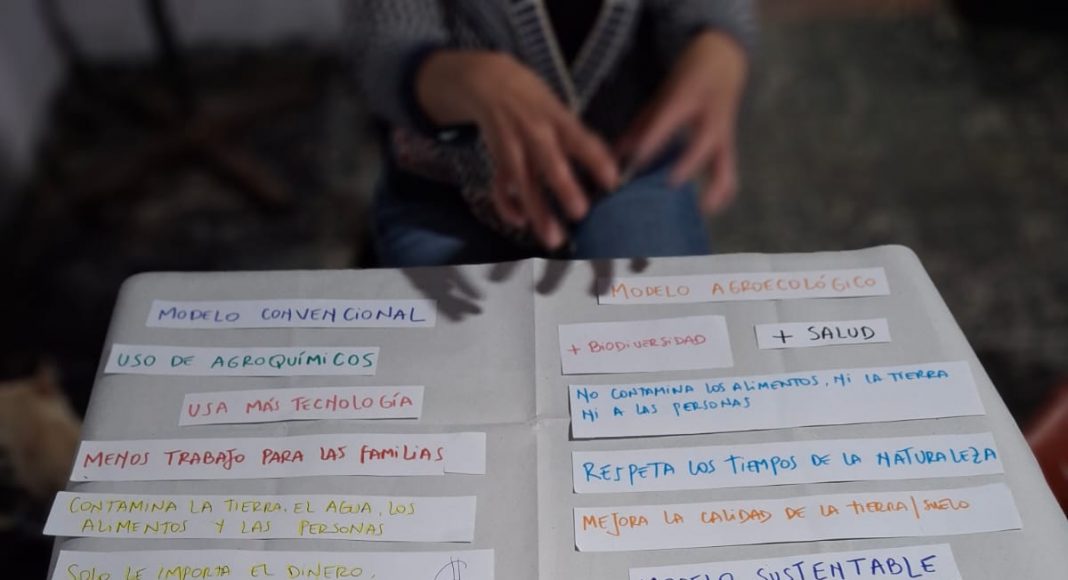 MODELO CONVENCIONAL
USO DE AGROQUÍMICOS
USA MÁS TECNOLOGÍA
MENOS TRABAJO PARA LAS FAMILIAS
CONTAMINA LA TIERRA, EL AGUA, LOS
ALIMENTOS Y LAS PERSONAS
SOLO LE IMPORTA EL DINERO. $
MODELO AGROECOLÓGICO
+ BIODIVERSIDAD
+ SALUD
NO CONTAMINA LOS ALIMENTOS, NI LA TIERRA
NI A LAS PERSONAS
RESPETA LOS TIEMPOS DE LA NATURALEZA
MEJORA LA CALIDAD DE LA TIERRA/SUELO
MODELO SUSTENTABLE